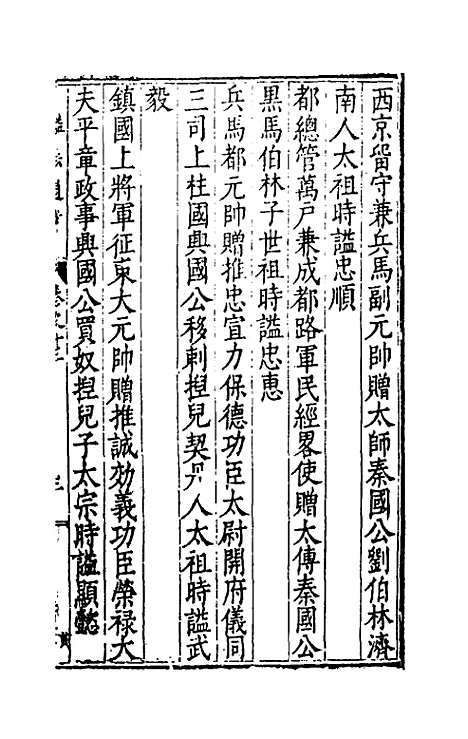 西京留守兼兵馬副元帥贈太師秦國公劉伯林濟
南人太祖時謚忠順
都總管萬戶兼成都路軍民經畧使贈太傅秦國公
黑馬伯林子世祖時謚忠惠
兵馬都元帥贈推忠宣力保德功臣太尉開府儀同
三司上柱國興國公移剌揑兒契丹人太祖時謚武
毅
鎮國上將軍征東大元帥贈推誠効義功臣榮祿大
夫平章政事興國公買奴揑兒子太宗時謚顯懿
謚法通考 卷之十三 三